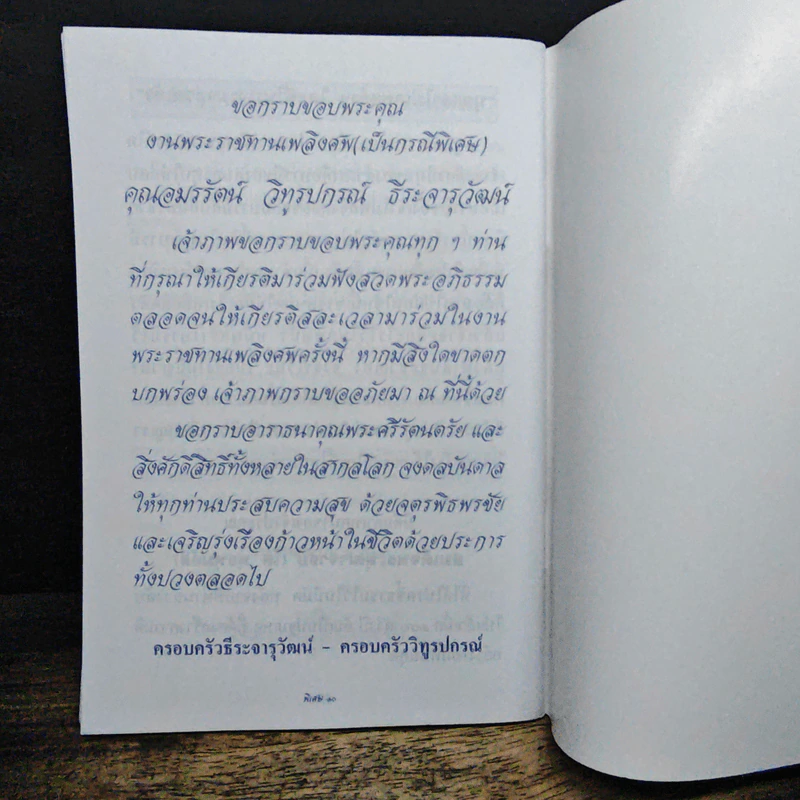 ขอกราบขอบพระคุณ
งานพระราชทานเพลิงศพ(เป็นกรณีพิเศษ)
คุณอมรรัตน์ วิทูรปกรณ์ ธีระจารุวัฒน์
เจ้าภาพขอกราบขอบพระคุณทุก ๆ ท่าน
ที่กรุณาให้เกียรติมาร่วมฟังสวดพระอภิธรรม
ตลอดจนให้เกียรติสละเวลามาร่วมในงาน
พระราชทานเพลิงศพครั้งนี้ หากมีสิ่งใดขาดตก
บกพร่อง เจ้าภาพกราบขออภัยมา ณ ที่นี้ด้วย
ขอกราบอาราธนาคุณพระศรีรัตนตรัย และ
สิ่งศักดิ์สิทธิ์ทั้งหลายในสากลโลก จงดลบันดาล
ให้ทุกท่านประสบความสุข ด้วยจตุรพิธพรชัย
และเจริญรุ่งเรืองก้าวหน้าในชีวิตด้วยประการ
ทั้งปวงตลอดไป
ครอบครัวธีระจารุวัฒน์ - ครอบครัววิทูรปกรณ์
พิเศษ ๑๐